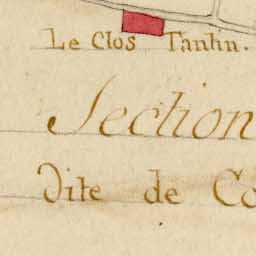 Le Clos Tanlin.
Section
Dite de Co